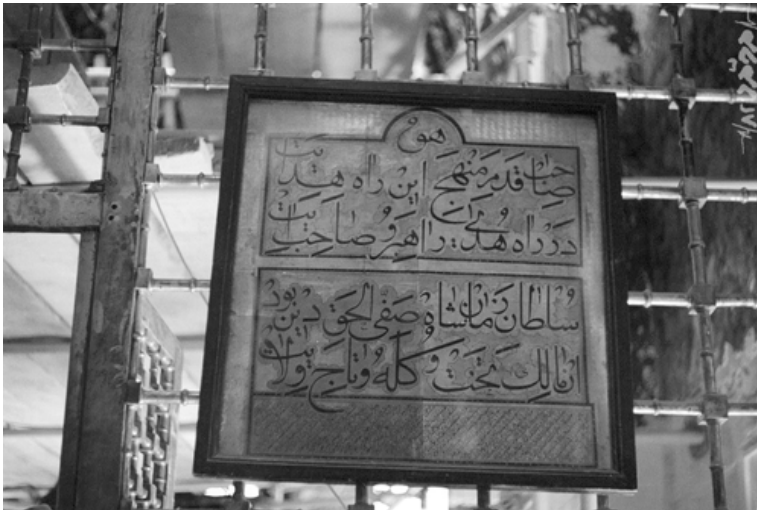 هو
صاحب قدم منهج این راه هدایت
در راه هدی راهبر و صاحب رایت
سلطان زمان شاه صفی الحق دین بود
آن مالک تخت و کله و تاج ولایت